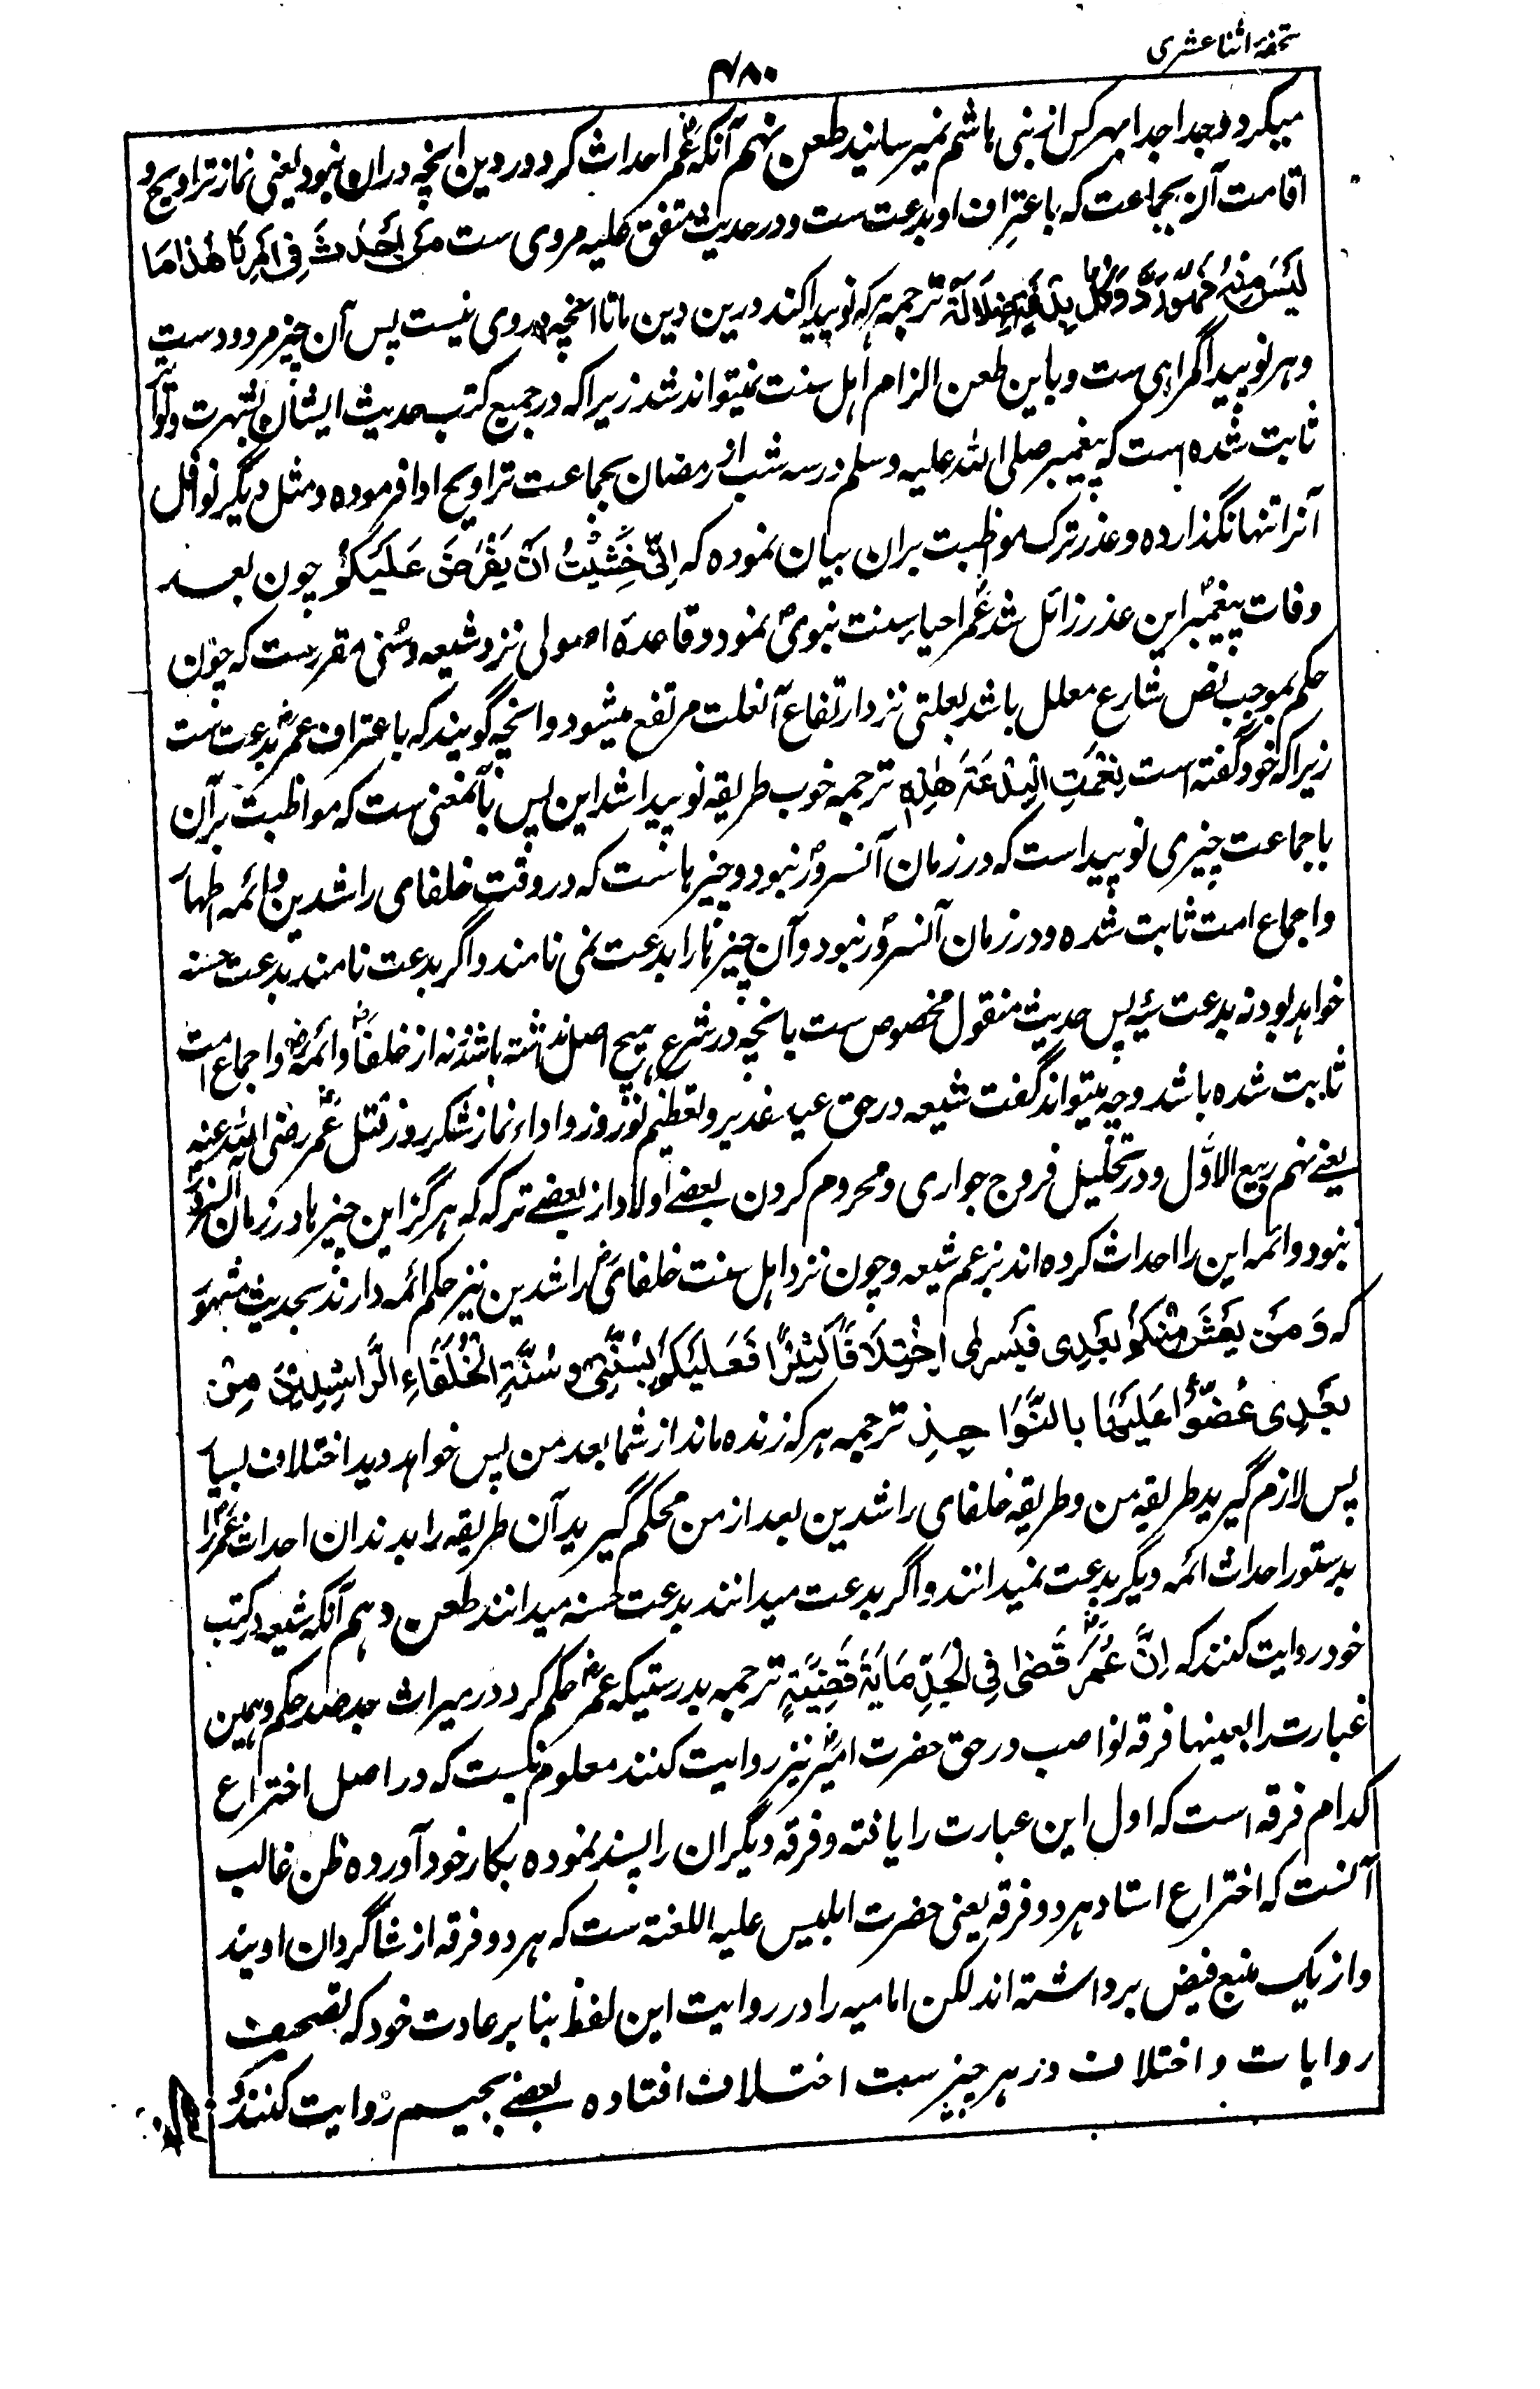 تحفهٔ اثنا عشری
۴۸۰
میکرد و جدا جدا بهر کس از بنی هاشم نمیرسانید طعن نهم آنکه عمرؓ احداث کرد در دین آنچه دران نبود یعنی نماز تراویح و
اقامت آن بجماعت که باعتراف او بدعت ست و در حدیث متفق علیه مروی ست مَنْ اَحْدَثَ فِی اَمْرِنَا هٰذَا مَا
لَیْسَ مِنْهُ فَهُوَ رَدٌّ وَکُلُّ بِدْعَةٍ ضَلَالَةٌ ترجمه هر که نو پیدا کند درین دین ما تا آنچه در وی نیست پس آن چیز مردود ست
و هر نو پیدا گمراهی ست و باین طعن الزام اهل سنت نمیتواند شد زیرا که در جمیع کتب حدیث ایشان بشهرت و تواتر
ثابت شده است که پیغمبر صلی الله علیه وسلم در سه شب از رمضان بجماعت تراویح ادا فرموده و مثل دیگر نوافل
آنرا تنها نگذارده و عذر ترک مواظبت بران بیان نموده که اِنِّی خَشِیْتُ اَنْ یُفْرَضَ عَلَیْکُمْ چون بعد
وفات پیغمبرؐ این عذر زائل شد عمرؓ احیاء سنت نبویؐ نمود و قاعدهٔ اصولی نزد شیعه و سُنی مقررست که چون
حکم بموجب نص شارع معلل باشد بعلتی نزد ارتفاع آنعلت مرتفع میشود و آنچه گویند که باعتراف عمرؓ بدعت ست
زیرا که خود گفته است نِعْمَتِ الْبِدْعَةُ هٰذِهٖ ترجمه خوب طریقه نو پیدا شد این پس بآنمعنی ست که مواظبت بر آن
با جماعت چیزی نو پیداست که در زمان آنسرورؐ نبود و چیزهاست که در وقت خلفای راشدین و ائمه اطهار
و اجماع امت ثابت شده و در زمان آنسرورؐ نبود و آن چیزها را بدعت نمی نامند و اگر بدعت نامند بدعت حسنه
خواهد بود نه بدعت سیّه پس حدیث منقول مخصوص ست بآنچه در شرع هیچ اصل نداشته باشد نه از خلفاؓ و ائمهؓ و اجماع امت
ثابت شده باشد و چه میتواند گفت شیعه در حق عید غدیر و تعظیم نوروز و اداء نماز شکر روز قتل عمرؓ رضی الله عنه
یعنی نهم ربیع الاوّل و در تحلیل فروج جواری و محروم کردن بعضے اولاد از بعضے ترکه که هرگز این چیزها در زمان آنسرورؐ
نبود و ائمه این را احداث کرده اند بزعم شیعه و چون نزد اهل سنت خلفای راشدین نیز حکم ائمه دارند بحدیث مشهور
که وَمَنْ یَعِشْ مِنْکُمْ بَعْدِی فَیَسَرٰی اِخْتِلَافًا کَثِیْرًا فَعَلَیْکُمْ بِسُنَّتِیْ وَسُنَّةِ الْخُلَفَاءِ الرَّاشِدِیْنَ مِنْ
بَعْدِی عَضُّوْا عَلَیْهَا بِالنَّوَاجِذِ ترجمه هر که زنده ماند از شما بعد من پس خواهد دید اختلاف بسیار
پس لازم گیرید طریقه من و طریقه خلفای راشدین بعد از من محکم گیرید آن طریقه را بدندان احداث عمرؓ را
بدستور احداث ائمه دیگر بدعت نمیدانند و اگر بدعت میدانند بدعت حسنه میدانند طعن دهم آنکه شیعه در کتب
خود روایت کنند که اِنَّ عُمَرَؓ قَضٰی فِی الْجَدِّ مِایَةَ قَضِیَّةٍ ترجمه بدرستیکه عمرؓ حکم کرد در میراث جد صد حکم و همین
عبارت را بعینها فرقه نواصب در حق حضرت امیرؓ نیز روایت کنند معلوم نیست که در اصل اختراع
کدام فرقه است که اول این عبارت را یافته و فرقه دیگران را پسند نموده بکار خود آورده ظن غالب
آنست که اختراع استاد هر دو فرقه یعنی حضرت ابلیس علیه اللعنة ست که هر دو فرقه از شاگردان اویند
و از یک منبع فیض برداشته اند لکن امامیه را در روایت این لفظ بنا بر عادت خود که تصحیف
روایات و اختلاف در هر چیز ست اختلاف افتاده بعضے بجیم روایت کنند